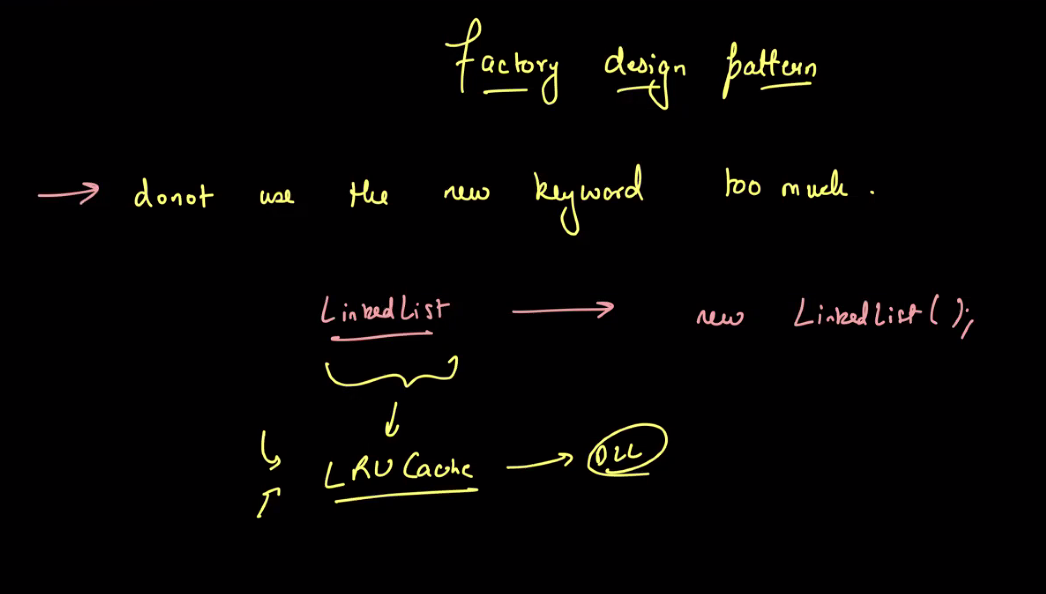 Factory design pattern
→ donot use the new keyword too much.
LinkedList → new LinkedList();
LRU Cache → DLL